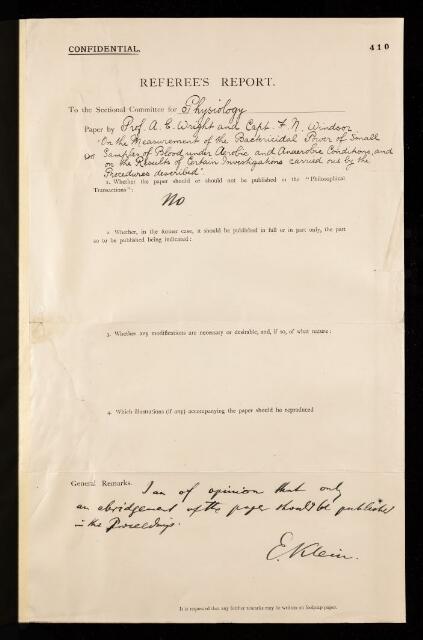 CONFIDENTIAL.
410
REFEREE'S REPORT.
To the Sectional Committee for Physiology
Paper by Prof. A. E. Wright and Capt. F. N. Windsor
"On the Measurement of the Bactericidal Power of Small
Samples of Blood under Aerobic and Anaerobic Conditions, and
on the Results of Certain Investigations carried out by the
Procedures described"
1. Whether the paper should or should not be published in the "Philosophical
Transactions":
No
2. Whether, in the former case, it should be published in full or in part only, the part
so to be published being indicated:
3. Whether any modifications are necessary or desirable, and, if so, of what nature:
4. Which illustrations (if any) accompanying the paper should be reproduced
General Remarks.
I am of opinion that only
an abridgement of the paper should be published
in the Proceedings.
E. Klein.
It is requested that any further remarks may be written on foolscap paper.